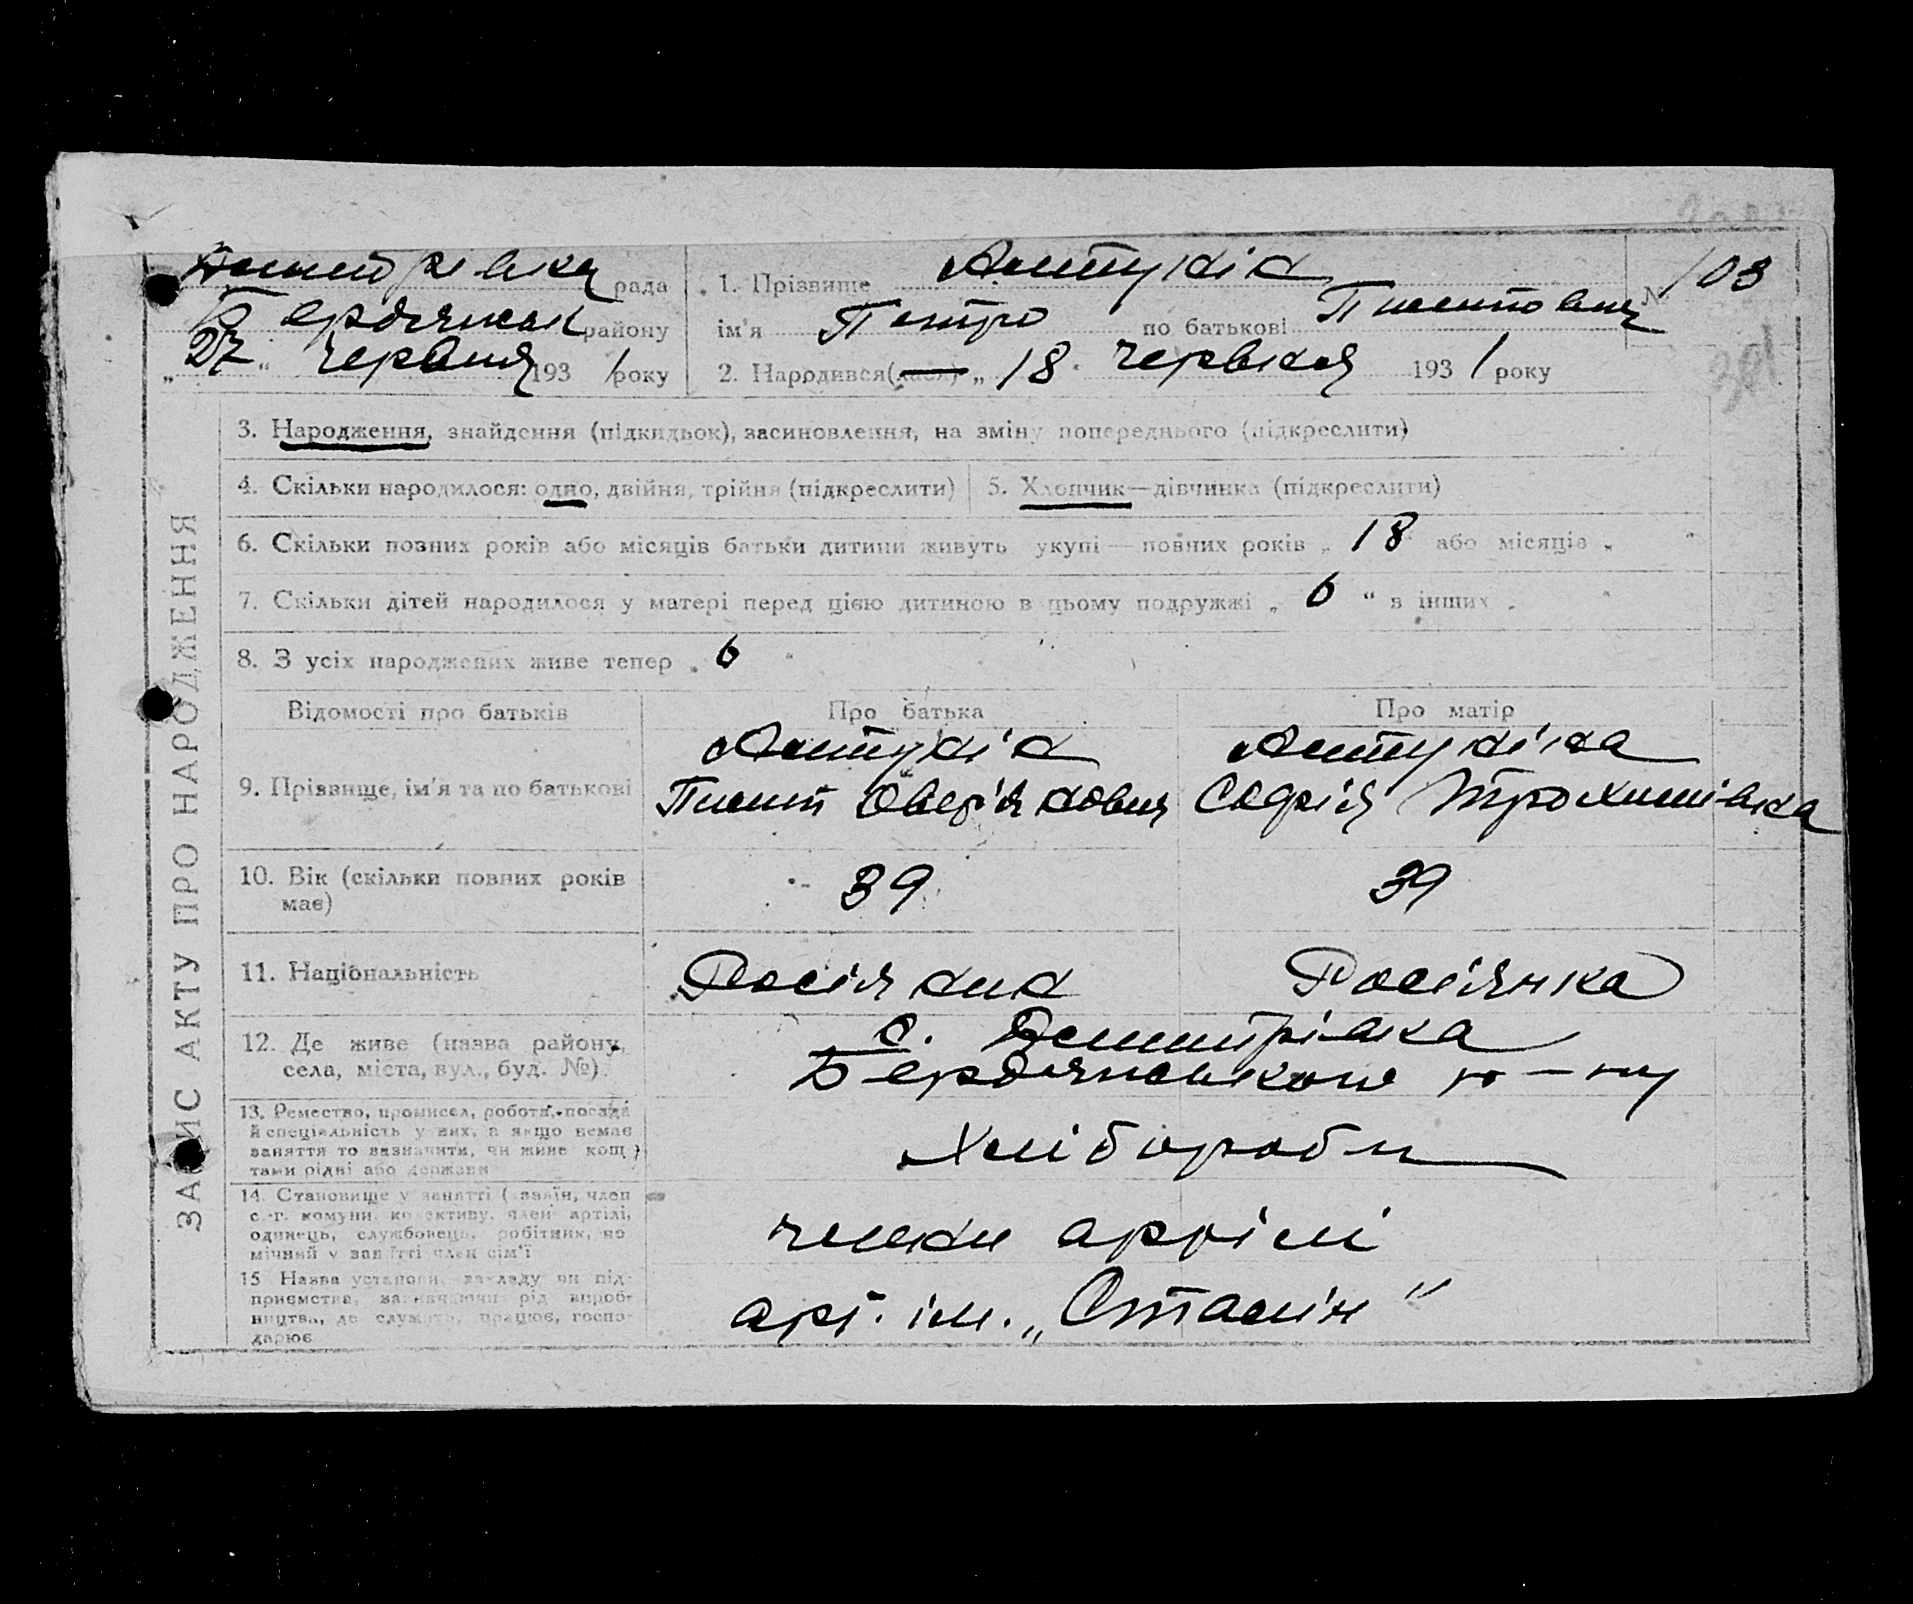 Дмитрівка рада
Бердянськ району
„27“ червня 1931 року
1. Прізвище Антукік
ім'я Петро по батькові Пименович
№ 103
2. Народився(лася) „18“ червня 1931 року
301
3. Народження, знайдення (підкидьок), засиновлення, на зміну попереднього (підкреслити)
4. Скільки народилося: одно, двійня, трійня (підкреслити)
5. Хлопчик—дівчинка (підкреслити)
6. Скільки повних років або місяців батьки дитини живуть укупі — повних років „18 або місяців „ “
7. Скільки дітей народилося у матері перед цією дитиною в цьому подружжі „6“ в інших „ “
8. З усіх народжених живе тепер „6“
Відомості про батьків
Про батька
Про матір
9. Прізвище, ім'я та по батькові
Пимен
Софія Трохимівна
10. Вік (скільки повних років
має)
39
39
11. Національність
Росіянин
Росіянка
12. Де живе (назва району,
села, міста, вул., буд. №)
с. Дмитрівка
Бердянського р-ну
13. Ремество, промисел, робота, посада
й спеціяльність у них, а якщо немає
заняття то зазначити, чи живе кош-
тами рідні або держави
Хлібороби
14. Становище у занятті (хазяїн, член
с.-г. комуни, колективу, член артілі,
одинець, службовець, робітник, по
мічний у занятті член сім'ї
члени артілі
15. Назва установи, закладу чи під-
приємства, зазначаючи рід вироб-
ництва, де служить, працює, госпо-
дарює
арт. ім. „Сталін“
ЗАПИС АКТУ ПРО НАРОДЖЕННЯ